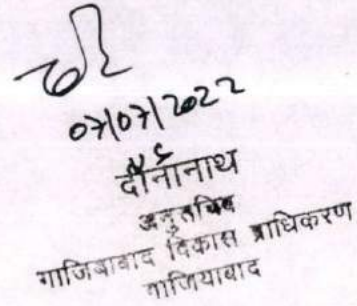 07/07/2022
दीनानाथ
अनुसचिव
गाजियाबाद विकास प्राधिकरण
गाजियाबाद